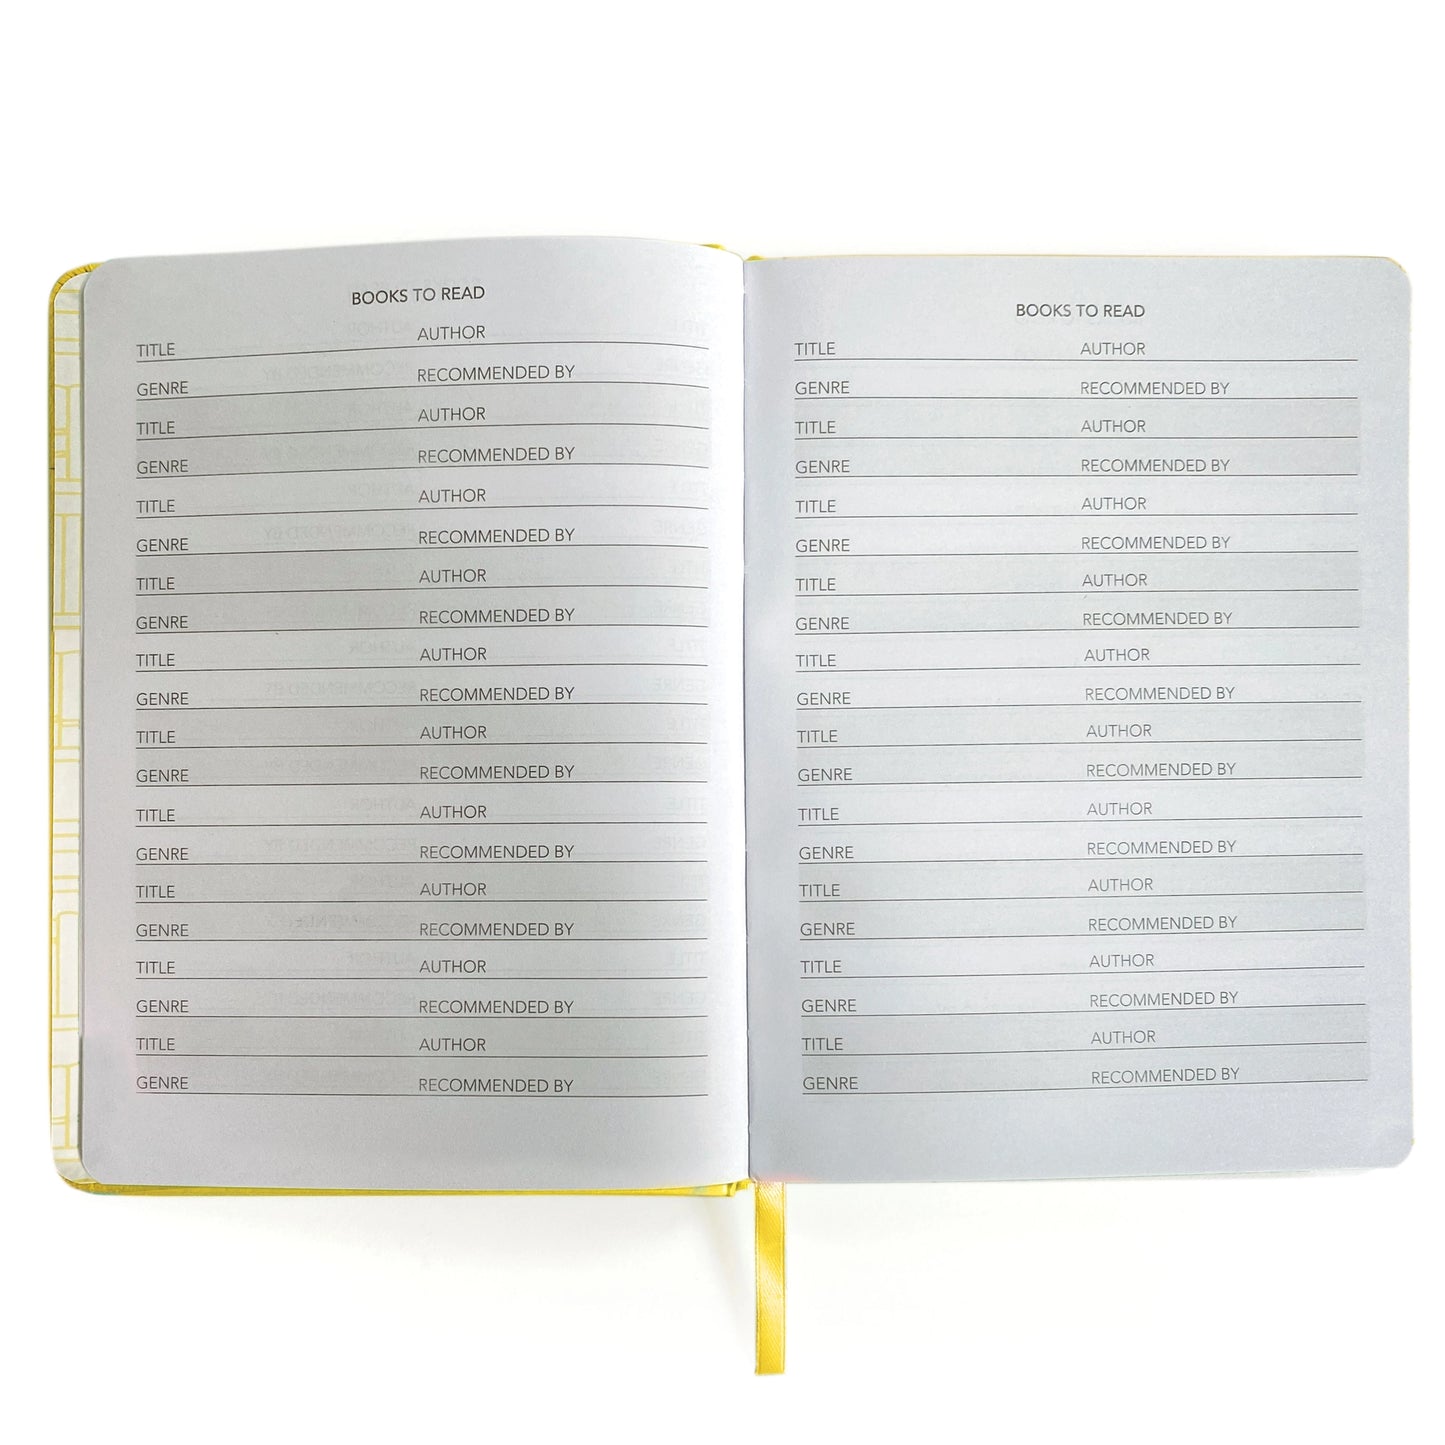 BOOKS TO READ
TITLE AUTHOR
GENRE RECOMMENDED BY
TITLE AUTHOR
GENRE RECOMMENDED BY
TITLE AUTHOR
GENRE RECOMMENDED BY
TITLE AUTHOR
GENRE RECOMMENDED BY
TITLE AUTHOR
GENRE RECOMMENDED BY
TITLE AUTHOR
GENRE RECOMMENDED BY
TITLE AUTHOR
GENRE RECOMMENDED BY
TITLE AUTHOR
GENRE RECOMMENDED BY
TITLE AUTHOR
GENRE RECOMMENDED BY
TITLE AUTHOR
GENRE RECOMMENDED BY
BOOKS TO READ
TITLE AUTHOR
GENRE RECOMMENDED BY
TITLE AUTHOR
GENRE RECOMMENDED BY
TITLE AUTHOR
GENRE RECOMMENDED BY
TITLE AUTHOR
GENRE RECOMMENDED BY
TITLE AUTHOR
GENRE RECOMMENDED BY
TITLE AUTHOR
GENRE RECOMMENDED BY
TITLE AUTHOR
GENRE RECOMMENDED BY
TITLE AUTHOR
GENRE RECOMMENDED BY
TITLE AUTHOR
GENRE RECOMMENDED BY
TITLE AUTHOR
GENRE RECOMMENDED BY